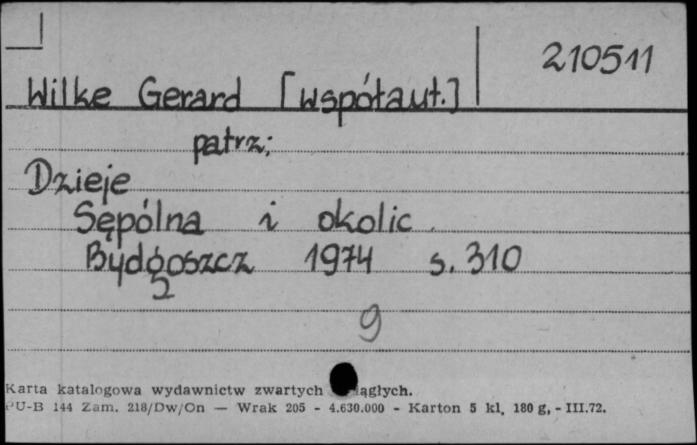 210511
Wilke Gerard [współaut.]
patrz:
Dzieje
Sępólna i okolic.
Bydgoszcz 1974 s. 310
2
9
Karta katalogowa wydawnictw zwartych
PU-B 144 Zam. 218/Dw/On — Wrak 205 - 4.630.000 - Karton 5 kl. 180 g, - III.72.